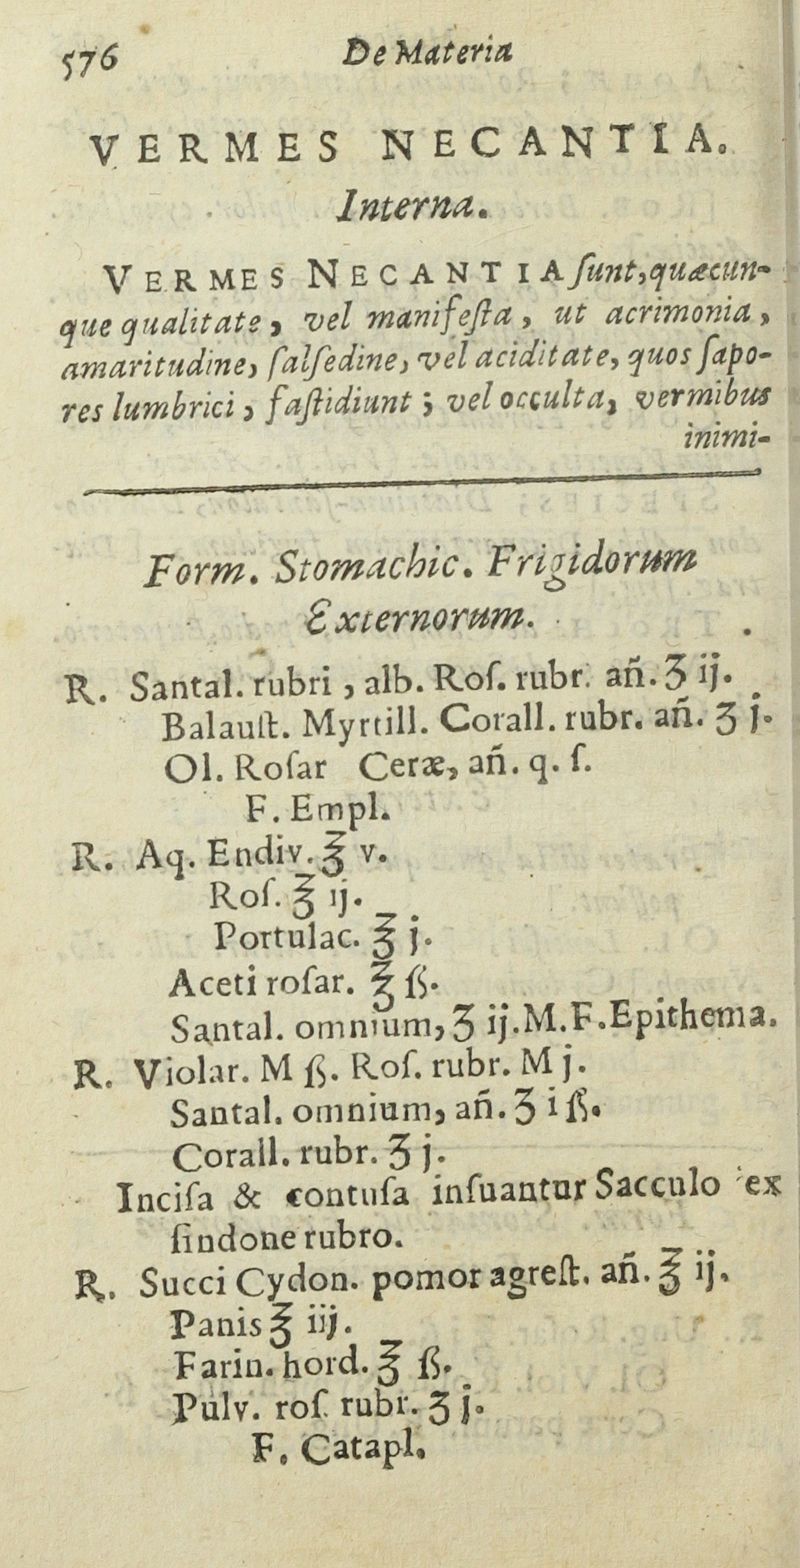 576 De Materia
VERMES NECANTIA.
Interna.
VERMES NECANTIA ſunt, quæcun-
que qualitate, vel manifeſta, ut acrimonia,
amaritudine, ſalſedine, vel aciditate, quos ſapo-
res lumbrici, faſtidiunt; vel occulta, vermibus
inimi-
Form. Stomachic. Frigidorum
Externorum.
R. Santal. rubri, alb. Roſ. rubr. an̄. ʒ ij.
Balauſt. Myrtill. Corall. rubr. an̄. ʒ j.
Ol. Roſar Ceræ, an̄. q. ſ.
F. Empl.
R. Aq. Endiv. ℥ v.
Roſ. ℥ ij.
Portulac. ℥ j.
Aceti roſar. ℥ ß.
Santal. omnium, ʒ ij. M. F. Epithema.
R. Violar. M ß. Roſ. rubr. M j.
Santal. omnium, an̄. ʒ i ß.
Corall. rubr. ʒ j.
Inciſa & contuſa inſuantur Sacculo ex
ſindone rubro.
R. Succi Cydon. pomor agreſt. an̄. ℥ ij.
Panis ℥ iij.
Farin. hord. ℥ ß.
Pulv. roſ. rubr. ʒ j.
F. Catapl.